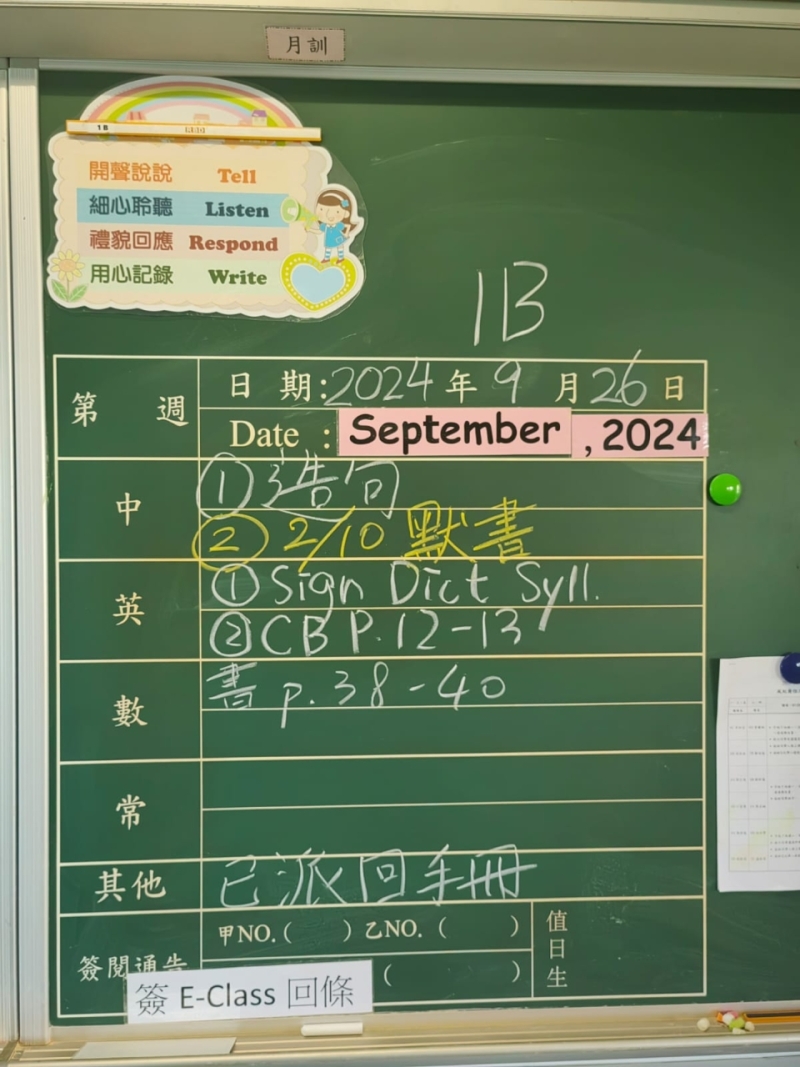 月訓
1B
開聲說說 Tell
細心聆聽 Listen
禮貌回應 Respond
用心記錄 Write
1B
第 週
日 期:2024年9月26日
Date : September , 2024
中
①造句
②2/10 默書
英
①Sign Dict Syll.
②CB P.12-13
數
書 p.38-40
常
其他
已派回手冊
簽閱通告
甲NO.( ) 乙NO.( )
( )
值日生
簽 E-Class 回條